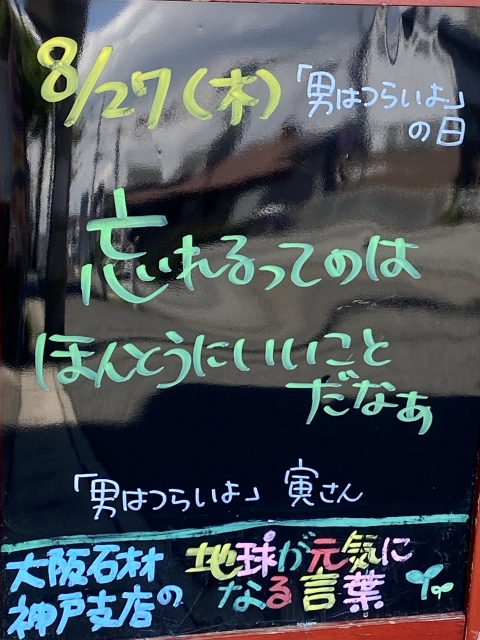 8/27(木)「男はつらいよ」
の日
忘れるってのは
ほんとうにいいこと
だなぁ
「男はつらいよ」 寅さん
大阪石材
神戸支店の
地球が元気に
なる言葉